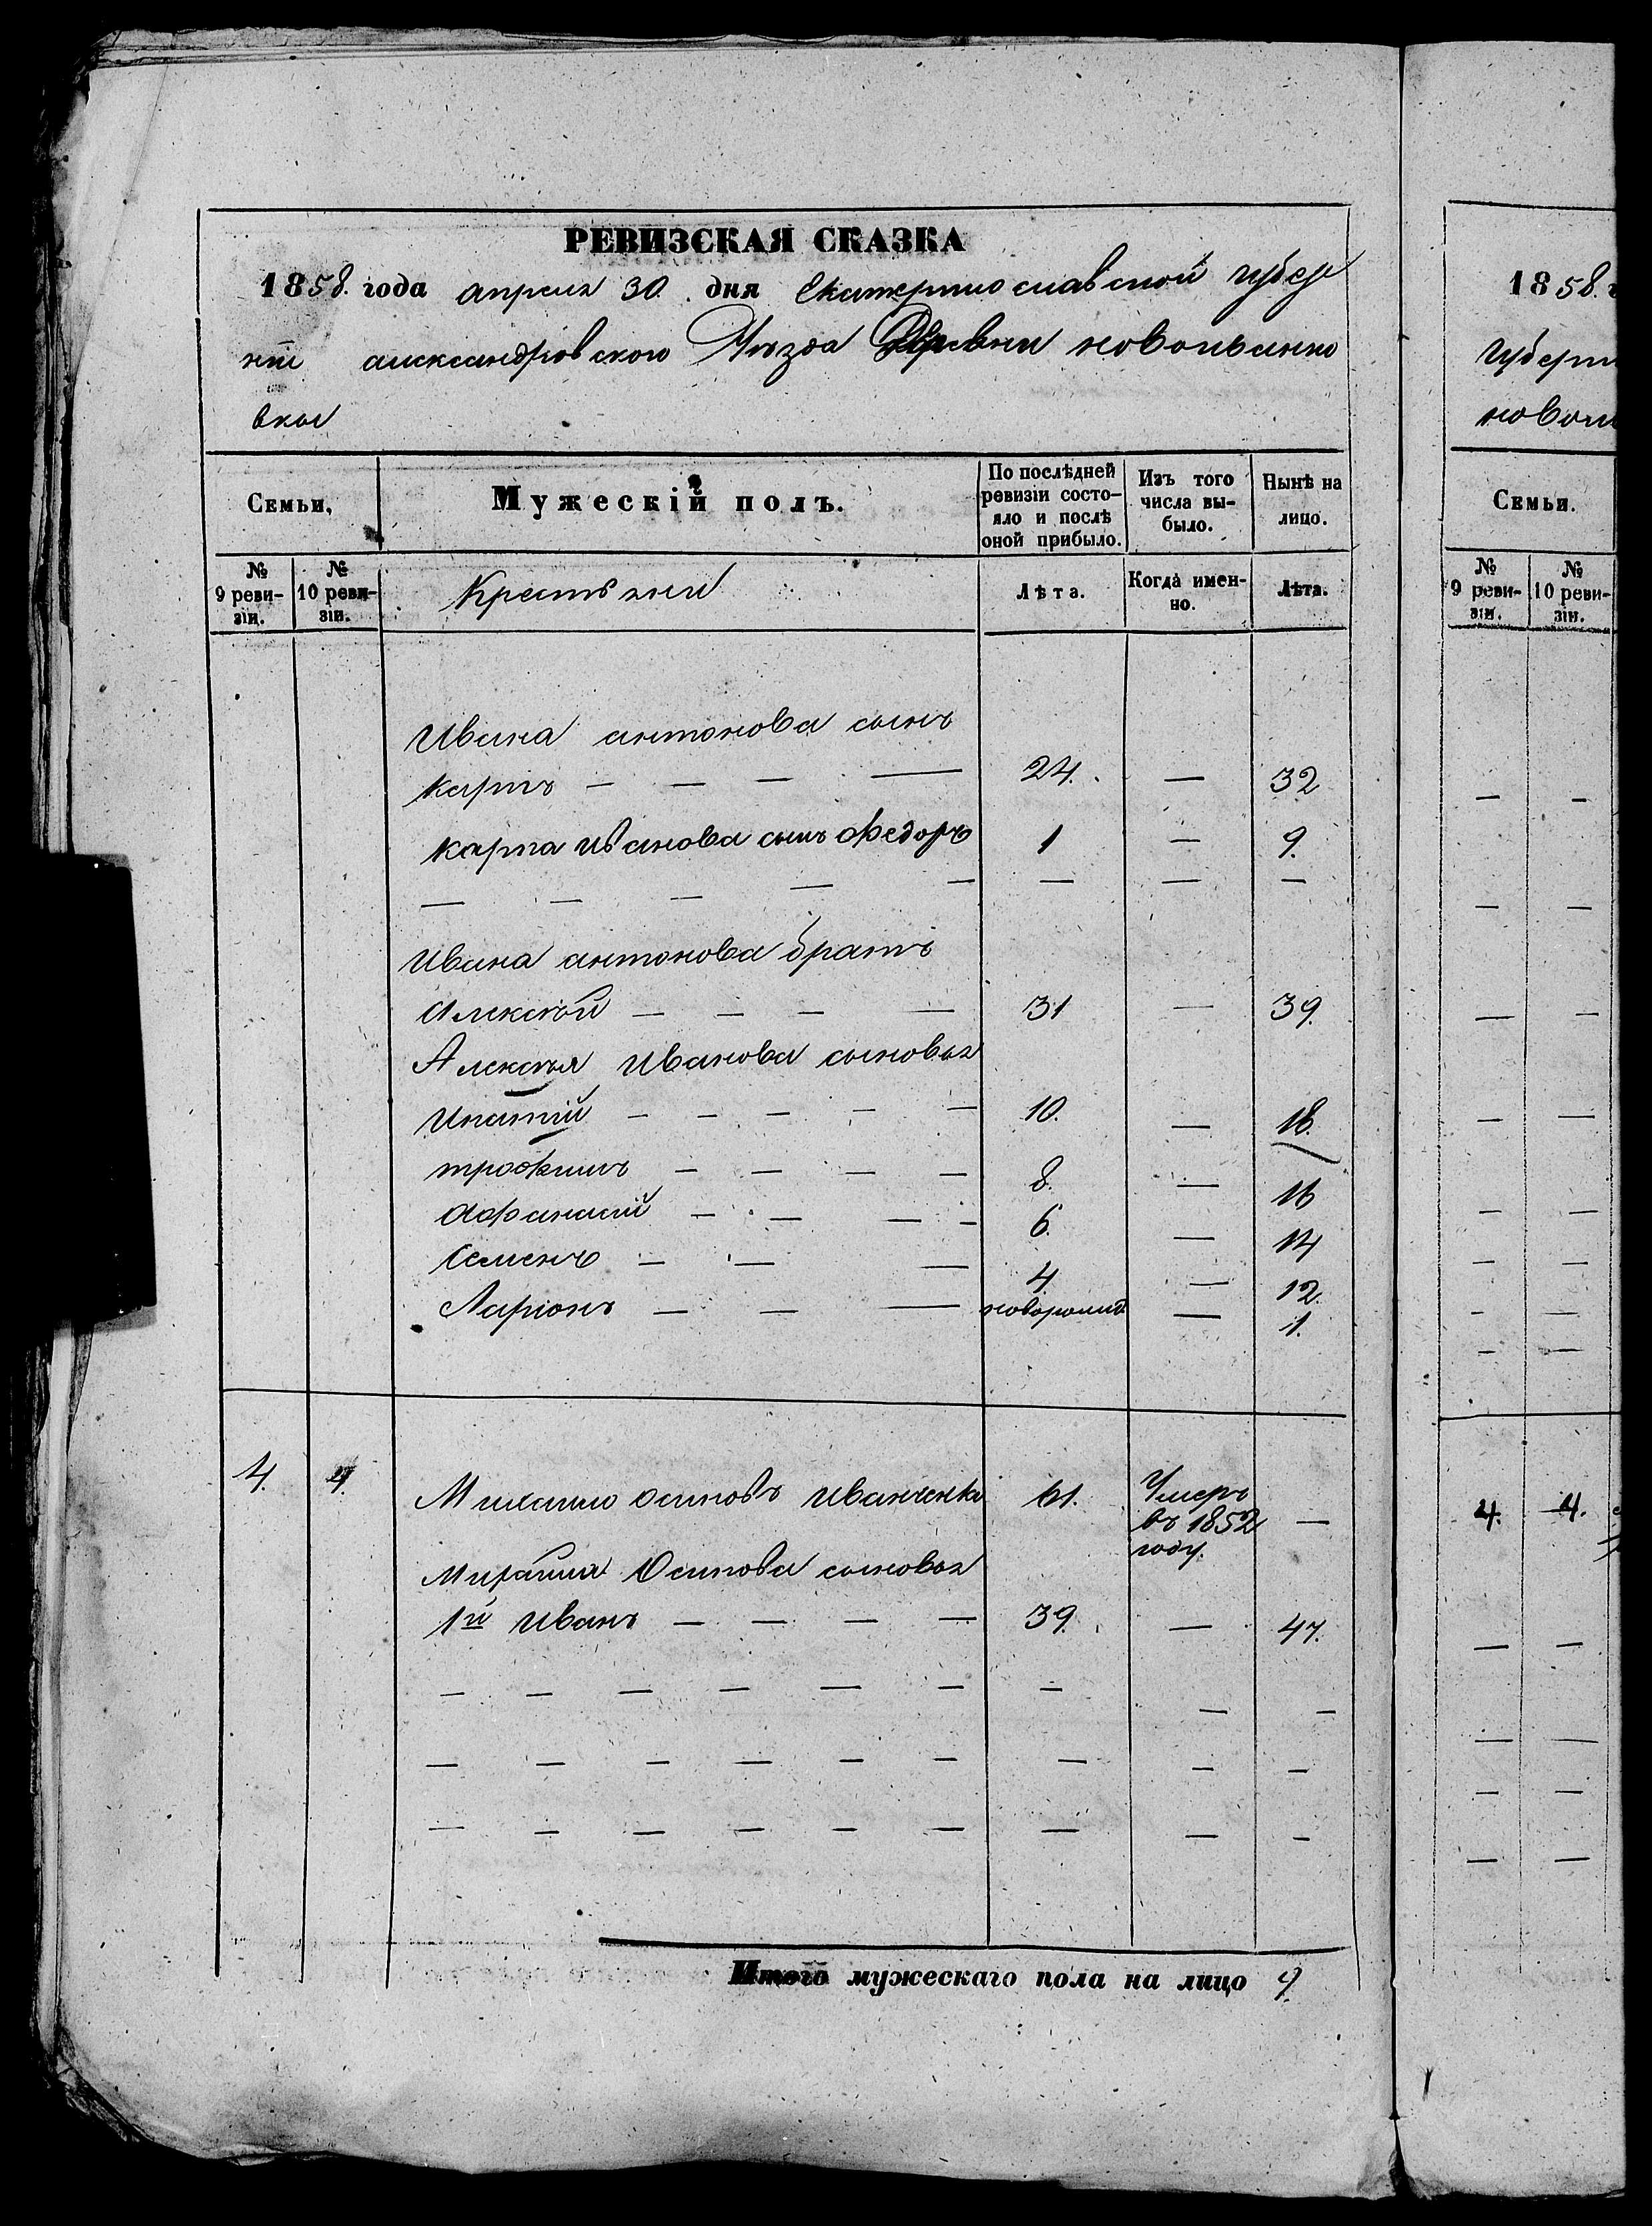 РЕВИЗСКАЯ СКАЗКА
1858. года апреля 30. дня Екатеринославской губер
нiи александровского Уѣзда Деревни новоивано
вки
Семьи,
Мужескiй полъ.
По послѣдней ревизiи состо-
яло и послѣ оной прибыло.
Изъ того числа вы-
было.
Нынѣ на лицо.
№ 9 реви-
зiи.
№ 10 реви-
зiи.
Крестьяни
Лѣта.
Когда имен-
но.
Лѣта.
Ивана антонова сынъ
карпъ — — — — 24. — 32
карпа иванова сынъ Федоръ 1 — 9.
— — — — — — — —
Ивана антонова братъ
Алексѣй — — — — 31 — 39.
Алексѣя Иванова сыновья
Ипатiй — — — — — 10. — 18.
трофимъ — — — — 8. — 16
Афанасiй — — — — 6. — 14
Семенъ — — — 4 — 12.
Ларiонъ — — — новорожд. — 1.
4. 4. Михайло осиповъ иванченко 61. Умеръ
въ 1852 —
году.
Михайла Осипова сыновья
1й Иванъ — — — — 39. — 47.
— — — — — — — — —
— — — — — — — — —
— — — — — — — — —
Итого мужескаго пола на лицо 9.
1858. г
Губерн
новои
Семьи.
№ 9 реви-
зiи.
№ 10 реви-
зiи.
— —
— —
— —
— —
— —
— —
— —
— —
4. 4.
— —
— —
— —
— —